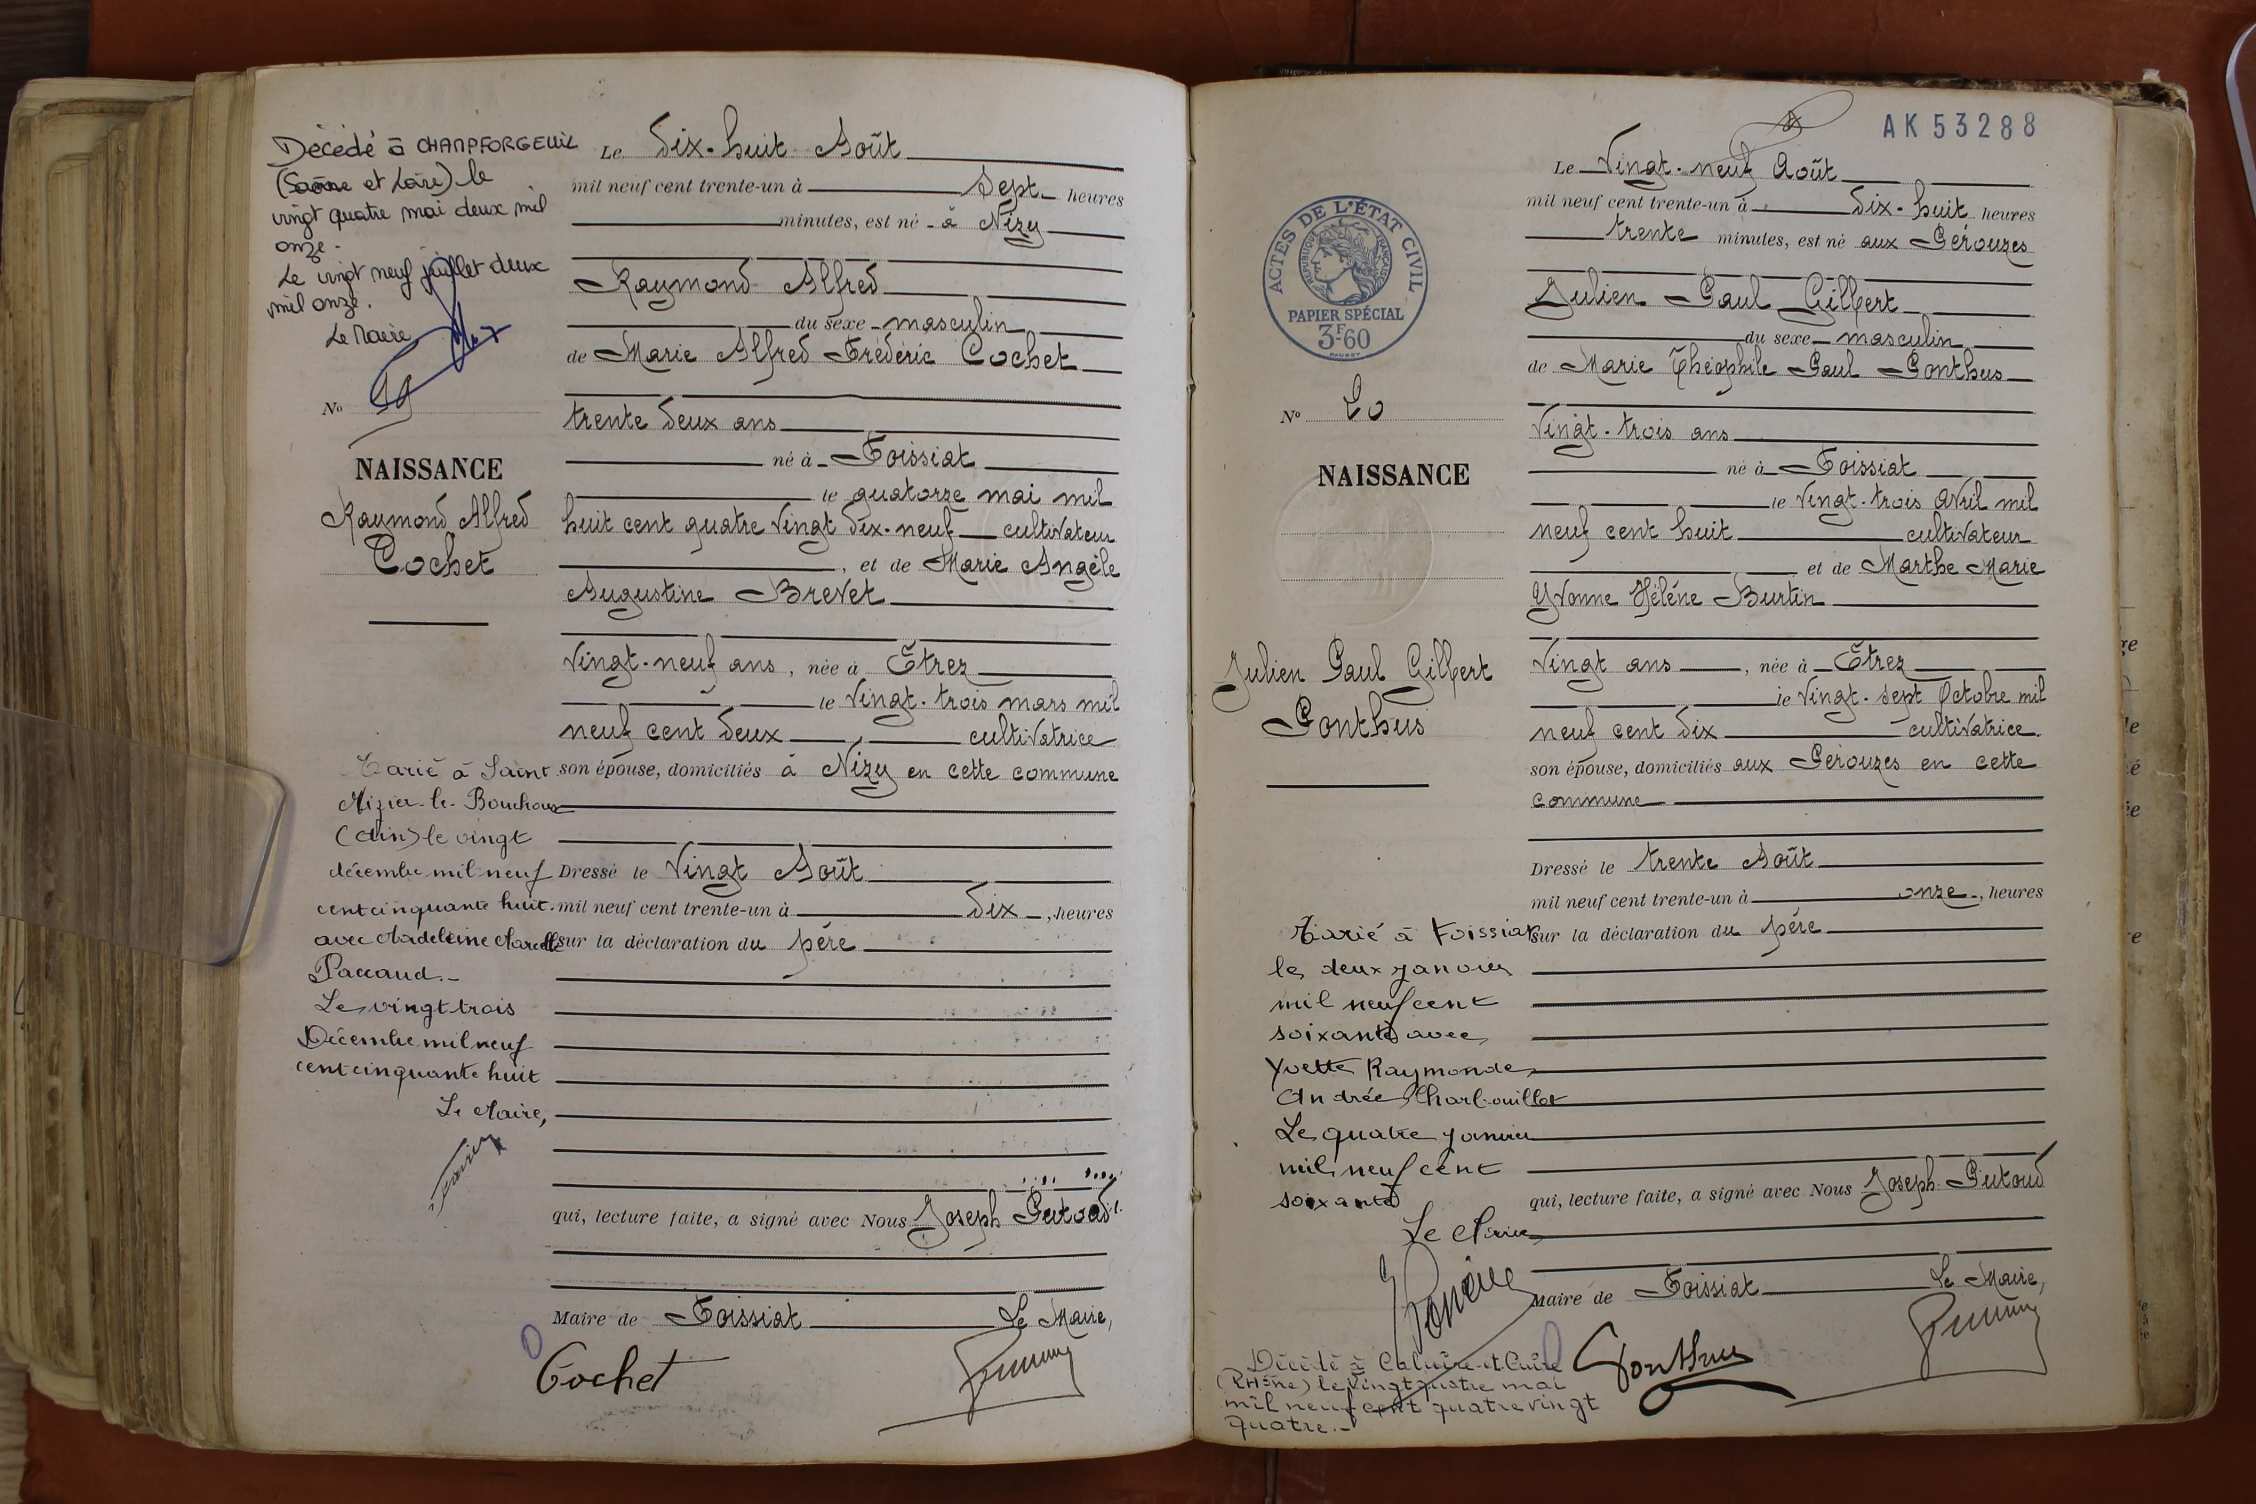 Décédé à CHAMPFORGEUIL
(Saône et Loire) le
vingt quatre mai deux mil
onze.
Le vingt neuf juillet deux
mil onze.
Le Maire
No 19
NAISSANCE
Raymond Alfred
Cochet
Marié à Saint
Nizier-le-Bouchoux
(Ain) le vingt
décembre mil neuf
cent cinquante huit.
avec Madeleine Marcelle
Paccaud.-
Le vingt trois
Décembre mil neuf
cent cinquante huit
Le Maire,
Le Dix-huit Août
mil neuf cent trente-un à Sept heures
minutes, est né à Nizy
Raymond Alfred
du sexe masculin
de Marie Alfred Frédéric Cochet
trente deux ans
né à Foissiat
le quatorze mai mil
huit cent quatre Vingt Dix-neuf cultivateur
, et de Marie Angèle
Augustine Brevet
Vingt-neuf ans, née à Etrez
le Vingt-trois mars mil
neuf cent deux cultivatrice
son épouse, domiciliés à Nizy en cette commune
Dressé le Vingt Août
mil neuf cent trente-un à Dix, heures
sur la déclaration du père
qui, lecture faite, a signé avec Nous Joseph Putoud
Maire de Foissiat Le Maire,
Cochet
AK 53288
ACTES DE L'ÉTAT CIVIL
RÉPUBLIQUE FRANÇAISE
PAPIER SPÉCIAL
3F.60
No 20
NAISSANCE
Julien Paul Gilbert
Ponthus
Marié à Foissiat
le deux janvier
mil neuf cent
soixante avec
Yvette Raymonde
Andrée Charbouillot
Le quatre janvier
mil neuf cent
soixante
Le Maire
Décédé à Caluire-et-Cuire
(RHône) le vingt quatre mai
mil neuf cent quatre vingt
quatre.-
Le Vingt-neuf Août
mil neuf cent trente-un à Dix-huit heures
trente minutes, est né aux Pérouzes
Julien Paul Gilbert
du sexe masculin
de Marie Théophile Paul Ponthus
Vingt-trois ans
né à Foissiat
le Vingt-trois Avril mil
neuf cent huit cultivateur
et de Marthe Marie
Yvonne Hélène Burtin
Vingt ans, née à Etrez
le Vingt-sept Octobre mil
neuf cent Dix cultivatrice
son épouse, domiciliés aux Pérouzes en cette
commune
Dressé le trente Août
mil neuf cent trente-un à onze, heures
sur la déclaration du père
qui, lecture faite, a signé avec Nous Joseph Putoud
Maire de Foissiat Le Maire,
Ponthus